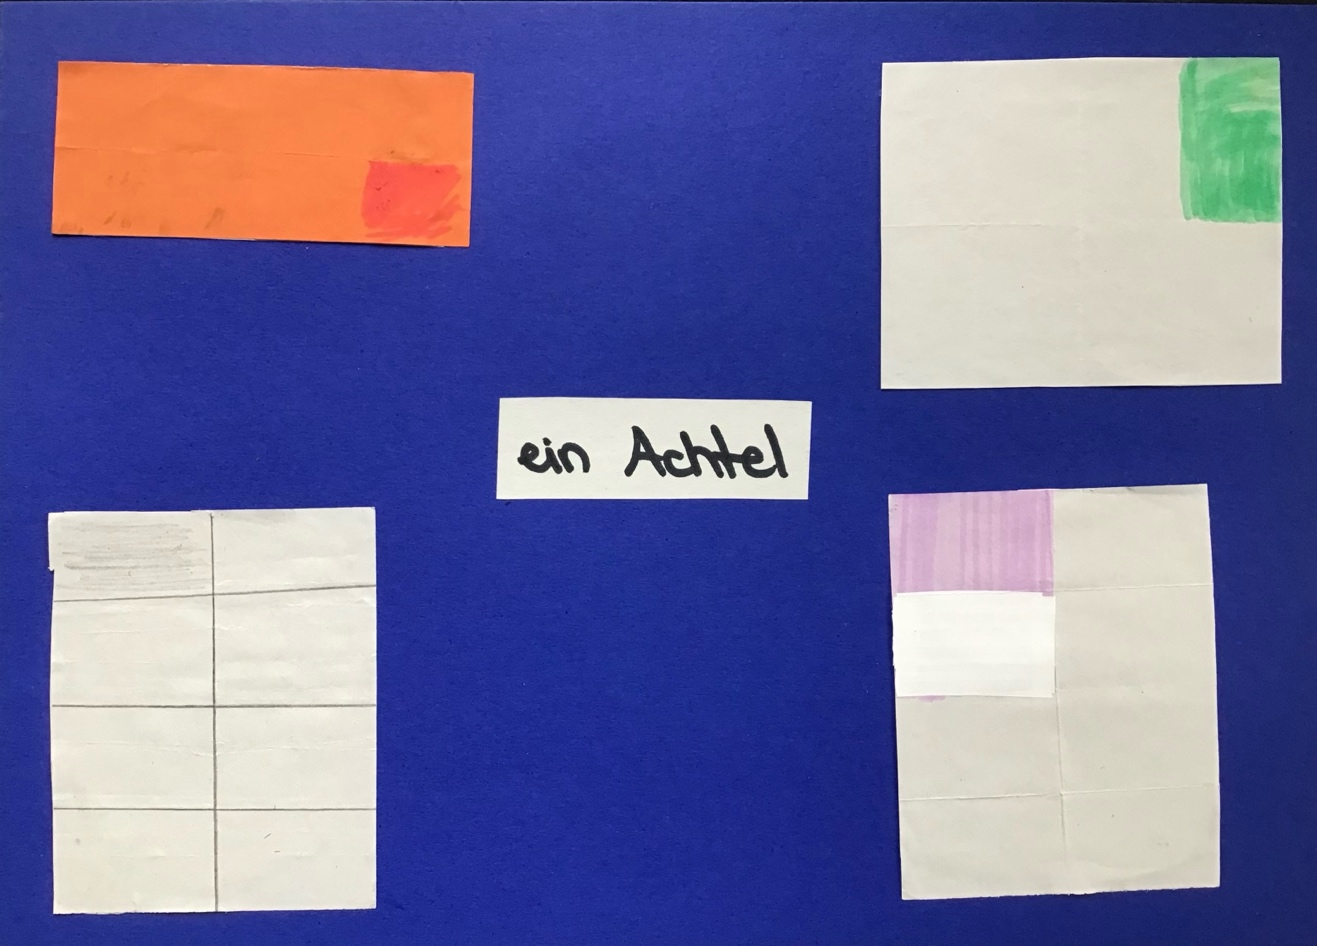 ein Achtel